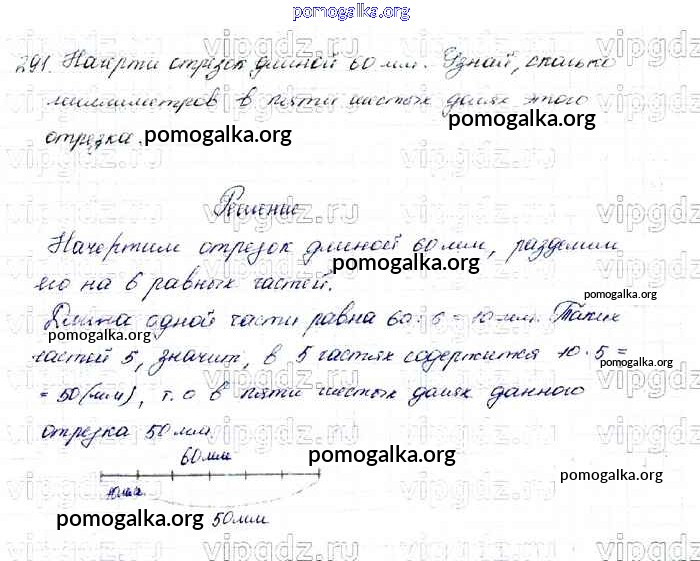 pomogalka.org
291. Начерти отрезок длиной 60 мм. Узнай, сколько
миллиметров в пяти шестых долях этого
отрезка.
pomogalka.org
Решение
Начертим отрезок длиной 60 мм, разделим
его на 6 равных частей.
pomogalka.org
Длина одной части равна 60:6=10 мм. Таких
частей 5, значит, в 5 частях содержится 10·5=
=50(мм), т.о в пяти шестых долях данного
отрезка 50 мм.
60мм
10мм
50мм
pomogalka.org
vipgdz.ru